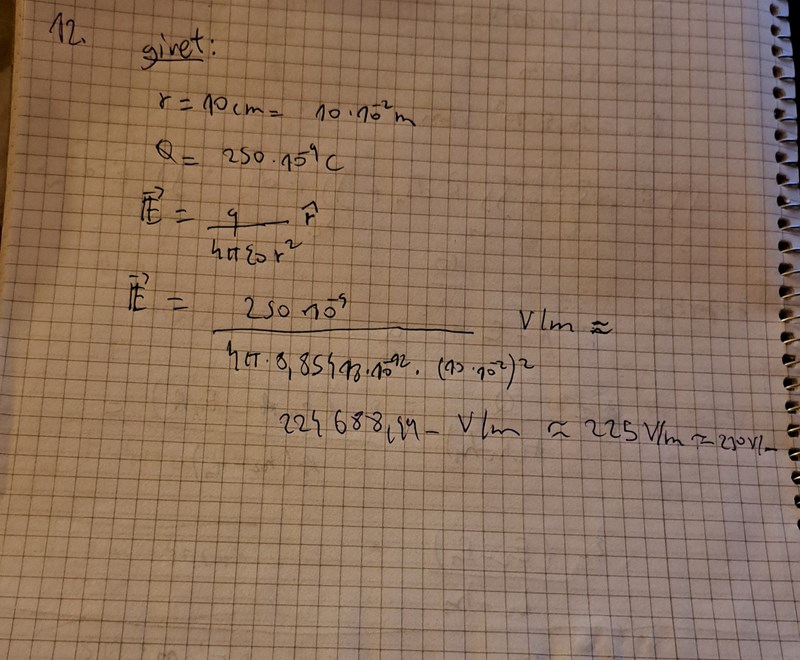 12.
givet:
r = 10 cm = 10·10⁻² m
Q = 250·10⁻⁹ C
E⃗ = q / 4πε₀ r² r̂
E⃗ = 250·10⁻⁹ / 4π·8,85418·10⁻¹²·(10·10⁻²)² V/m ≈
224688,44- V/m ≈ 225 V/m ≈ 230 V/m